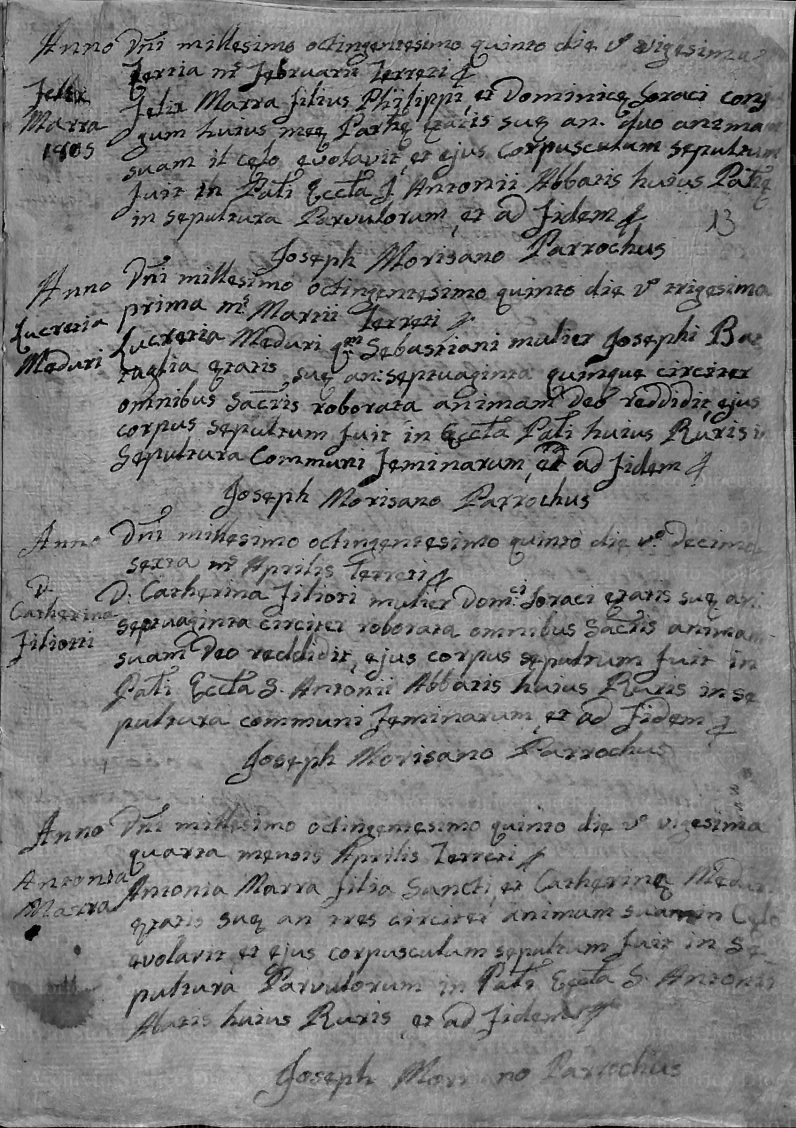 Anno Dñi millesimo octingentesimo quinto die vº vigesima
Tertia mˢ Februarii Terreti
Felix
Marra
1805
Felix Marra filius Philippi, et Dominicę Soraci conj
gum huius meę Parhę ętatis suę an. quo animam
suam il cęlo evolavit, et ejus corpusculum sepultum
fuit in Pali Eccta S. Antonii Abbatis huius Patrę
in sepultura Parvulorum, et ad fidem
13
Joseph Morisano Parrochus
Anno Dñi millesimo octingentesimo quinto die vº trigesima
prima mˢ Martii Terreti
Lucretia
Meduri
Lucretia Meduri qm Sebastiani mulier Josephi Bat
taglia ętatis suę an: septuaginta quinque circiter
omnibus Sacris roborata animam Deo reddidit, ejus
corpus sepultum fuit in Eccta Pali huius Ruris i
Sepultura Communi Feminarum, et ad fidem
Joseph Morisano Parrochus
Anno Dñi millesimo octingentesimo quinto die vº decima
sexta mˢ Aprilis Terreti
D.
Catherina
Filiotti
D. Catherina Filioti mulier Domci Soraci ętatis suę an
septuaginta circiter roborata omnibus Sacris animam
suam Deo reddidit, ejus corpus sepultum fuit in
Pali Eccta S. Antonii Abbatis huius Ruris in se
pultura communi Feminarum, et ad fidem
Joseph Morisano Parrochus
Anno Dñi millesimo octingentesimo quinto die vº vigesima
quarta mensis Aprilis Terreti
Antonia
Marra
Antonia Marra filia Sancti, et Catherinę Meduri
ętatis suę an tres circiter animam suam in Cęlo
evolavit et ejus corpusculum sepultum fuit in Se
pultura Parvulorum in Pali Eccta S. Antonii
Abatis huius Ruris, et ad fidem
Joseph Morisano Parrochus